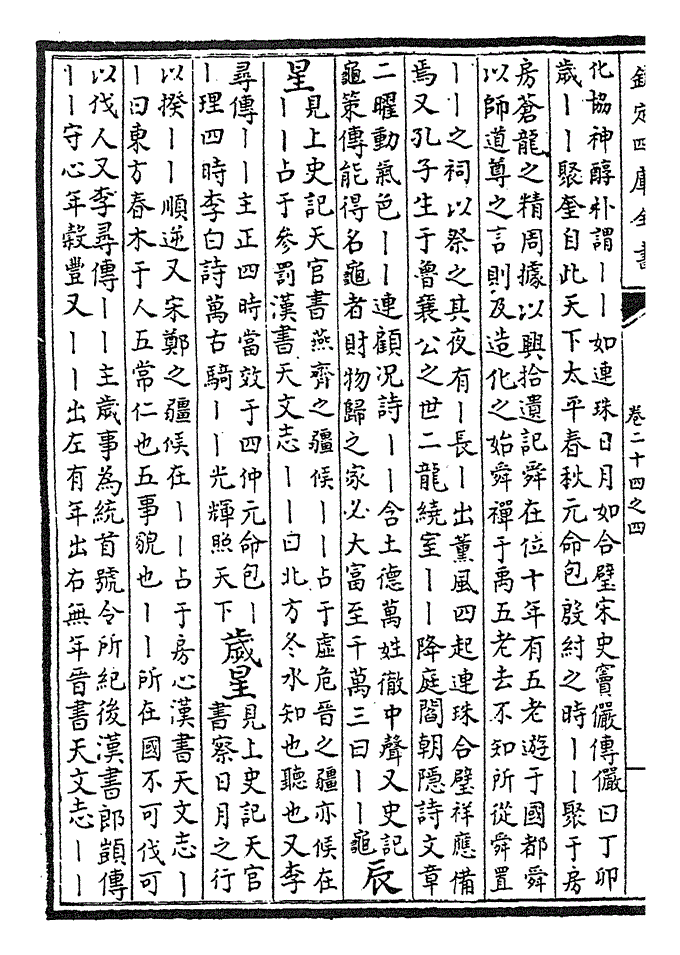 欽定四庫全書
卷二十四之四
化協神醇朴謂丨丨如連珠日月如合璧宋史竇儼傳儼曰丁卯
歲丨丨聚奎自此天下太平春秋元命包殷紂之時丨丨聚于房
房蒼龍之精周據以興拾遺記舜在位十年有五老遊于國都舜
以師道尊之言則及造化之始舜禪于禹五老去不知所從舜置
丨丨之祠以祭之其夜有丨長丨出薰風四起連珠合璧祥應備
焉又孔子生于魯襄公之世二龍繞室丨丨降庭閻朝隱詩文章
二曜動氣色丨丨連顧況詩丨丨含土德萬姓徹中聲又史記
龜策傳能得名龜者財物歸之家必大富至千萬三曰丨丨龜
辰
星
見上史記天官書燕齊之疆候丨丨占于虛危晉之疆亦候在
丨丨占于參罰漢書天文志丨丨曰北方冬水知也聽也又李
尋傳丨丨主正四時當效于四仲元命包丨
丨理四時李白詩萬古騎丨丨光輝照天下
歲星
見上史記天官
書察日月之行
以揆丨丨順逆又宋鄭之疆候在丨丨占于房心漢書天文志丨
丨曰東方春木于人五常仁也五事貌也丨丨所在國不可伐可
以伐人又李尋傳丨丨主歲事為統首號令所紀後漢書郎顗傳
丨丨守心年穀豐又丨丨出左有年出右無年晉書天文志丨丨